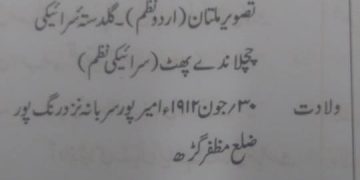 تصویر ملتان (اردو نظم)۔ گلدستہ سرائیکی
چھلاندے پھٹ (سرائیکی نظم)
ولادت ۳۰/جون ۱۹۱۲ء امیر پور سربانہ نزد رنگ پور
ضلع مظفر گڑھ